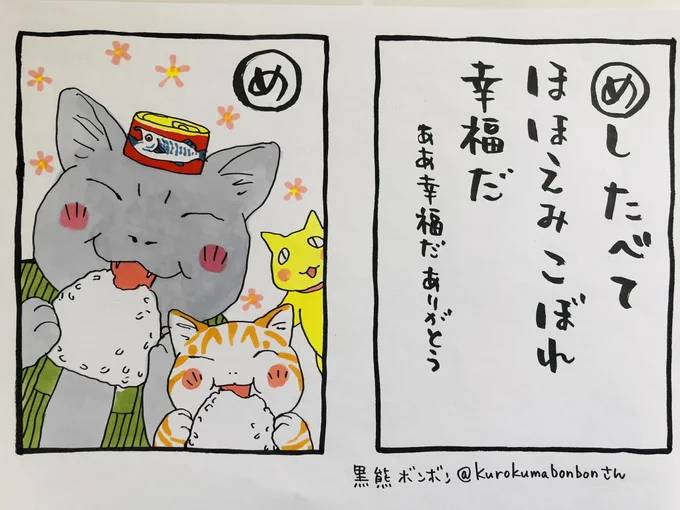 め
めしたべて
ほほえみこぼれ
幸福だ
ああ幸福だありがとう
黒熊ボンボン@kurokumabonbonさん